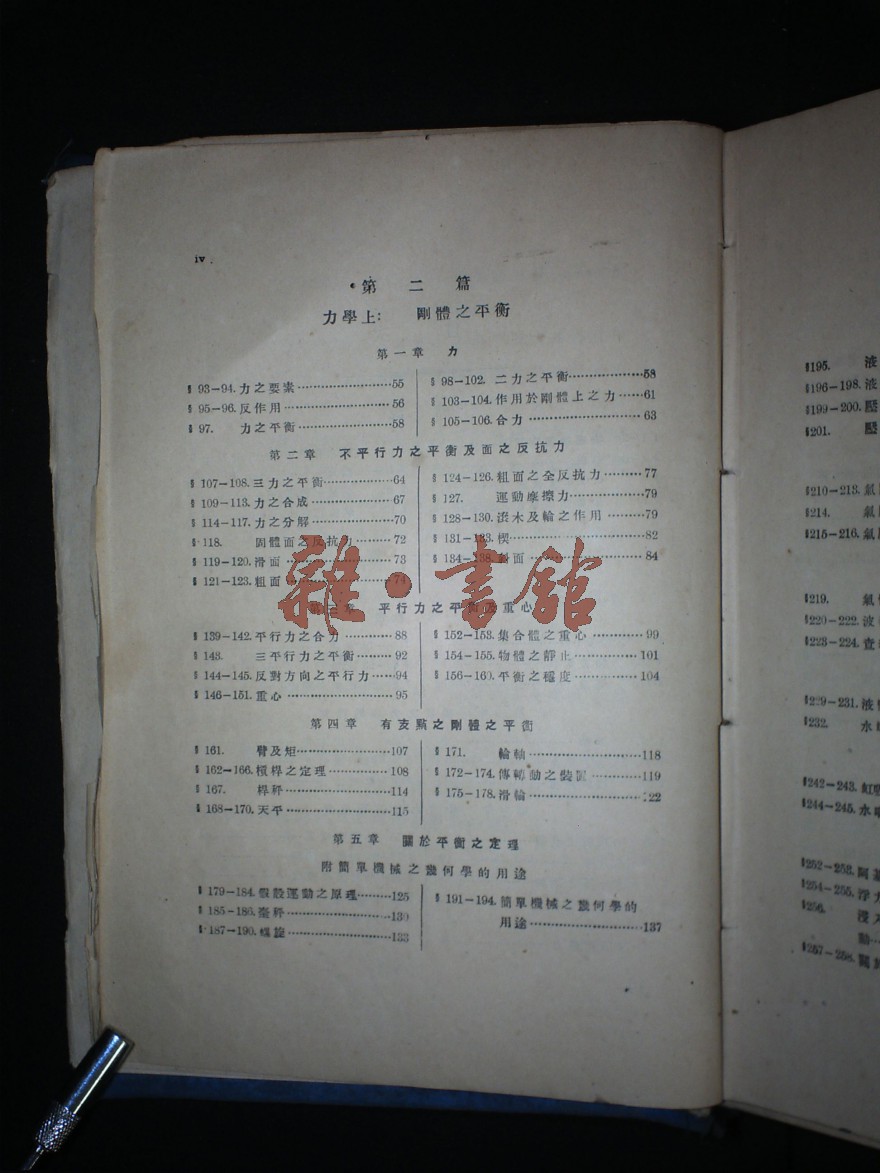 iv
第二篇
力學上： 剛體之平衡
第一章 力
§ 93-94. 力之要素 55
§ 95-96. 反作用 56
§ 97. 力之平衡 58
§ 98-102. 二力之平衡 58
§ 103-104. 作用於剛體上之力 61
§ 105-106. 合力 63
第二章 不平行力之平衡及面之反抗力
§ 107-108. 三力之平衡 64
§ 109-113. 力之合成 67
§ 114-117. 力之分解 70
§ 118. 固體面之反抗力 72
§ 119-120. 滑面 73
§ 121-123. 粗面 74
§ 124-126. 粗面之全反抗力 77
§ 127. 運動摩擦力 79
§ 128-130. 滾木及輪之作用 79
§ 131-133. 楔 82
§ 134-138. 斜面 84
雜·書館
第三章 平行力之平衡及重心
§ 139-142. 平行力之合力 88
§ 143. 三平行力之平衡 92
§ 144-145. 反對方向之平行力 94
§ 146-151. 重心 95
§ 152-153. 集合體之重心 99
§ 154-155. 物體之靜止 101
§ 156-160. 平衡之穩度 104
第四章 有支點之剛體之平衡
§ 161. 臂及矩 107
§ 162-166. 槓桿之定理 108
§ 167. 桿秤 114
§ 168-170. 天平 115
§ 171. 輪軸 118
§ 172-174. 傳轉動之裝置 119
§ 175-178. 滑輪 122
第五章 關於平衡之定理
附簡單機械之幾何學的用途
§ 179-184. 假設運動之原理 125
§ 185-186. 臺秤 130
§ 187-190. 螺旋 133
§ 191-194. 簡單機械之幾何學的
用途 137
§195. 液
§196-198. 液
§199-200. 壓
§201. 壓
§210-213. 氣
§214. 氣
§215-216. 氣
§219. 氣
§220-222. 液
§223-224. 查
§229-231. 液
§232. 水
§242-243. 虹
§244-245. 水
§252-253. 阿基
§254-255. 浮力
§256. 浸
動
§257-258.